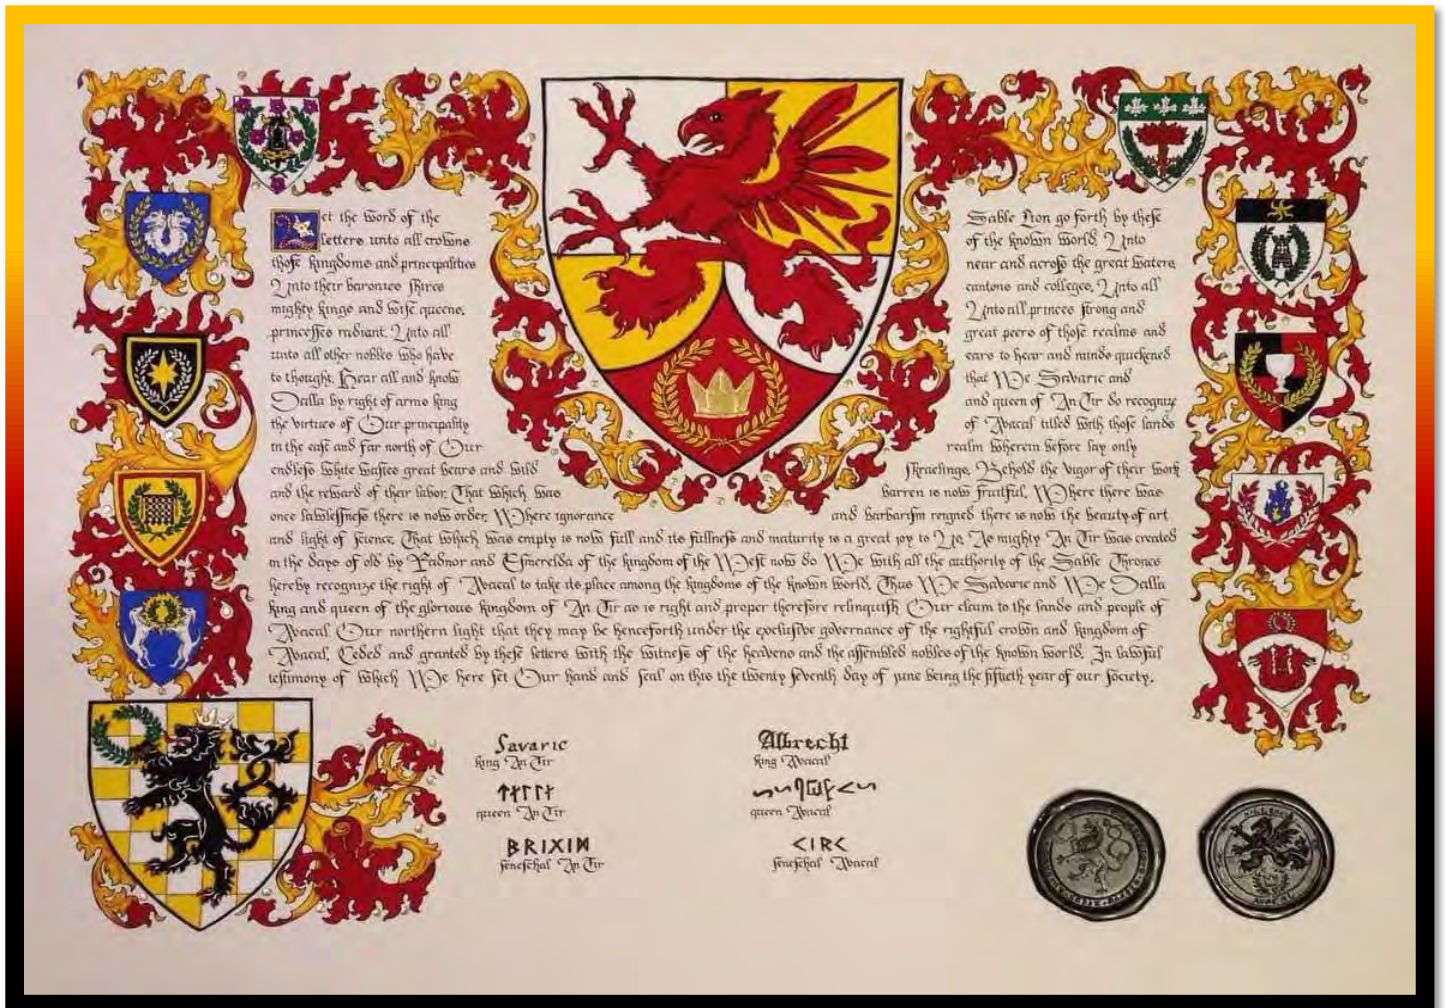 Let the word of the Sable Lion go forth by these
letters unto all crowns of the known world. Unto
those kingdoms and principalities near and across the great waters
Unto their baronies shires cantons and colleges. Unto all
mighty kings and wise queens. Unto all princes strong and
princesses radiant. Unto all great peers of those realms and
unto all other nobles who have ears to hear and minds quickened
to thought. Hear all and know that We Savaric and
Dalla by right of arms king and queen of An Tir do recognize
the virtues of Our principality of Avacal titled with those lands
in the east and far north of Our realm wherein before lay only
endless white wastes great bears and wild Skraelings. Behold the vigor of their work
and the reward of their labor. That which was barren is now fruitful. Where there was
once lawlessness there is now order. Where ignorance and barbarism reigned there is now the beauty of art
and light of science. That which was empty is now full and its fullness and maturity is a great joy to Us. As mighty An Tir was created
in the days of old by Radnor and Esmerelda of the kingdom of the West now do We with all the authority of the Sable Thrones
hereby recognize the right of Avacal to take its place among the kingdoms of the known world. Thus We Savaric and We Dalla
king and queen of the glorious kingdom of An Tir as is right and proper therefore relinquish Our claim to the lands and people of
Avacal Our northern light that they may be henceforth under the exclusive governance of the rightful crown and kingdom of
Avacal. Ceded and granted by these letters with the witness of the heavens and the assembled nobles of the known world. In lawful
testimony of which We here set Our hand and seal on this the twenty seventh day of june being the fiftieth year of our society.
Savaric
king An Tir
queen An Tir
BRIXIM
seneschal An Tir
Albrecht
king Avacal
queen Avacal
seneschal Avacal